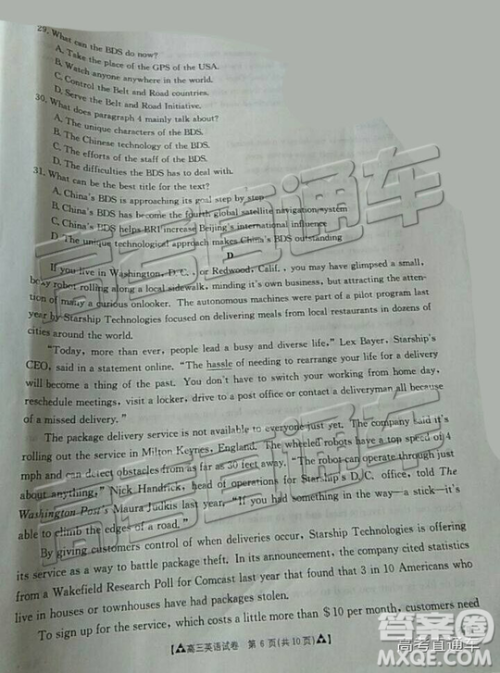 29. What can the BDS do now?
A. Take the place of the GPS of the USA.
B. Watch anyone anywhere in the world.
C. Control the Belt and Road countries.
D. Serve the Belt and Road Initiative.
30. What does paragraph 4 mainly talk about?
A. The unique characters of the BDS.
B. The Chinese technology of the BDS.
C. The efforts of the staff of the BDS.
D. The difficulties the BDS has to deal with.
31. What can be the best title for the text?
A. China's BDS is approaching its goal step by step
B. China's BDS has become the fourth global satellite navigation system
C. China's BDS helps BRI increase Beijing's international influence
D. The unique technological approach makes China's BDS outstanding
D
If you live in Washington, D.C., or Redwood, Calif., you may have glimpsed a small,
boxy robot rolling along a local sidewalk, minding it's own business, but attracting the atten-
tion of many a curious onlooker. The autonomous machines were part of a pilot program last
year by Starship Technologies focused on delivering meals from local restaurants in dozens of
cities around the world.
"Today, more than ever, people lead a busy and diverse life," Lex Bayer, Starship's
CEO, said in a statement online. "The hassle of needing to rearrange your life for a delivery
will become a thing of the past. You don't have to switch your working from home day,
reschedule meetings, visit a locker, drive to a post office or contact a deliveryman all because
of a missed delivery."
The package delivery service is not available to everyone just yet. The company said it's
rolling out the service in Milton Keynes, England. The wheeled robots have a top speed of 4
mph and can detect obstacles from as far as 30 feet away. "The robot can operate through
about anything," Nick Handrick, head of operations for Starship's D.C. office, told The
Washington Post's Maura Judkis last year. "If you had something in the way—a stick—it's
able to climb the edges of a road."
By giving customers control of when deliveries occur, Starship Technologies is offering
its service as a way to battle package theft. In its announcement, the company cited statistics
from a Wakefield Research Poll for Comcast last year that found that 3 in 10 Americans who
live in houses or townhouses have had packages stolen.
To sign up for the service, which costs a little more than $10 per month, customers need
【高三英语试卷 第 6 页(共 10 页)】
高考直通车
高考直通车
高考直通车
答案圈
MXQE.COM